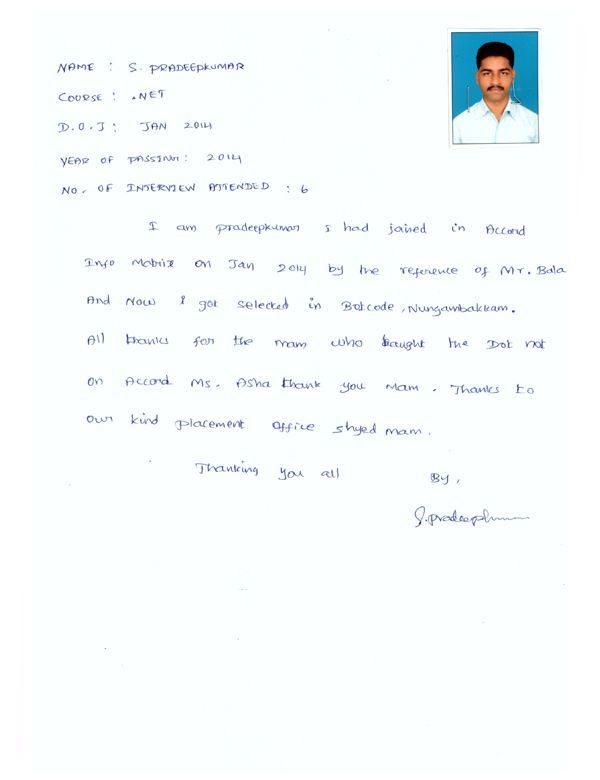 NAME : S. PRADEEPKUMAR
COURSE : .NET
D.O.J : JAN 2014
YEAR OF PASSING : 2014
NO. OF INTERVIEW ATTENDED : 6
I am pradeepkumar I had joined in Accord
Info Matrix on Jan 2014 by the reference of Mr. Bala
And Now I got selected in Botcode, Nungambakkam.
All thanks for the mam who taught the Dot not
on Accord Ms. Asha thank you Mam. Thanks to
our kind placement office shyed mam.
Thanking you all
By,
S. Pradeepkumar